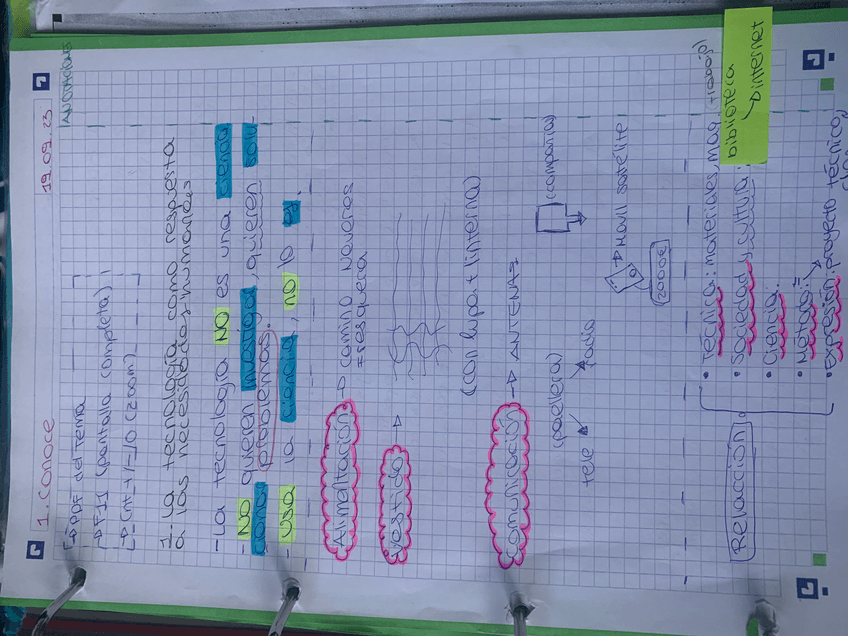 1. Conoce
19.09.23
ANOTACIONES
→ PDF del tema
→ F11 (pantalla completa)
→ Cntr +/-/0 (zoom)
1- La tecnología como respuesta
a las necesidades humanas
- La tecnología NO es una ciencia
- NO quieren investigar, quieren solu-
cionar problemas.
- USA la ciencia, no lo es.
Alimentación → camino Neveras
Fresquera
Vestido →
(con lupa + linterna)
Comunicación → ANTENAS
(paellera)
tele
radio
(compañía)
→ Móvil satélite
2000€
Relación
• Técnica: materiales, maq
(trabajo)
• Sociedad y cultura:
• Ciencia:
• Método:
• Expresión: proyecto técnico,
biblioteca
→ internet